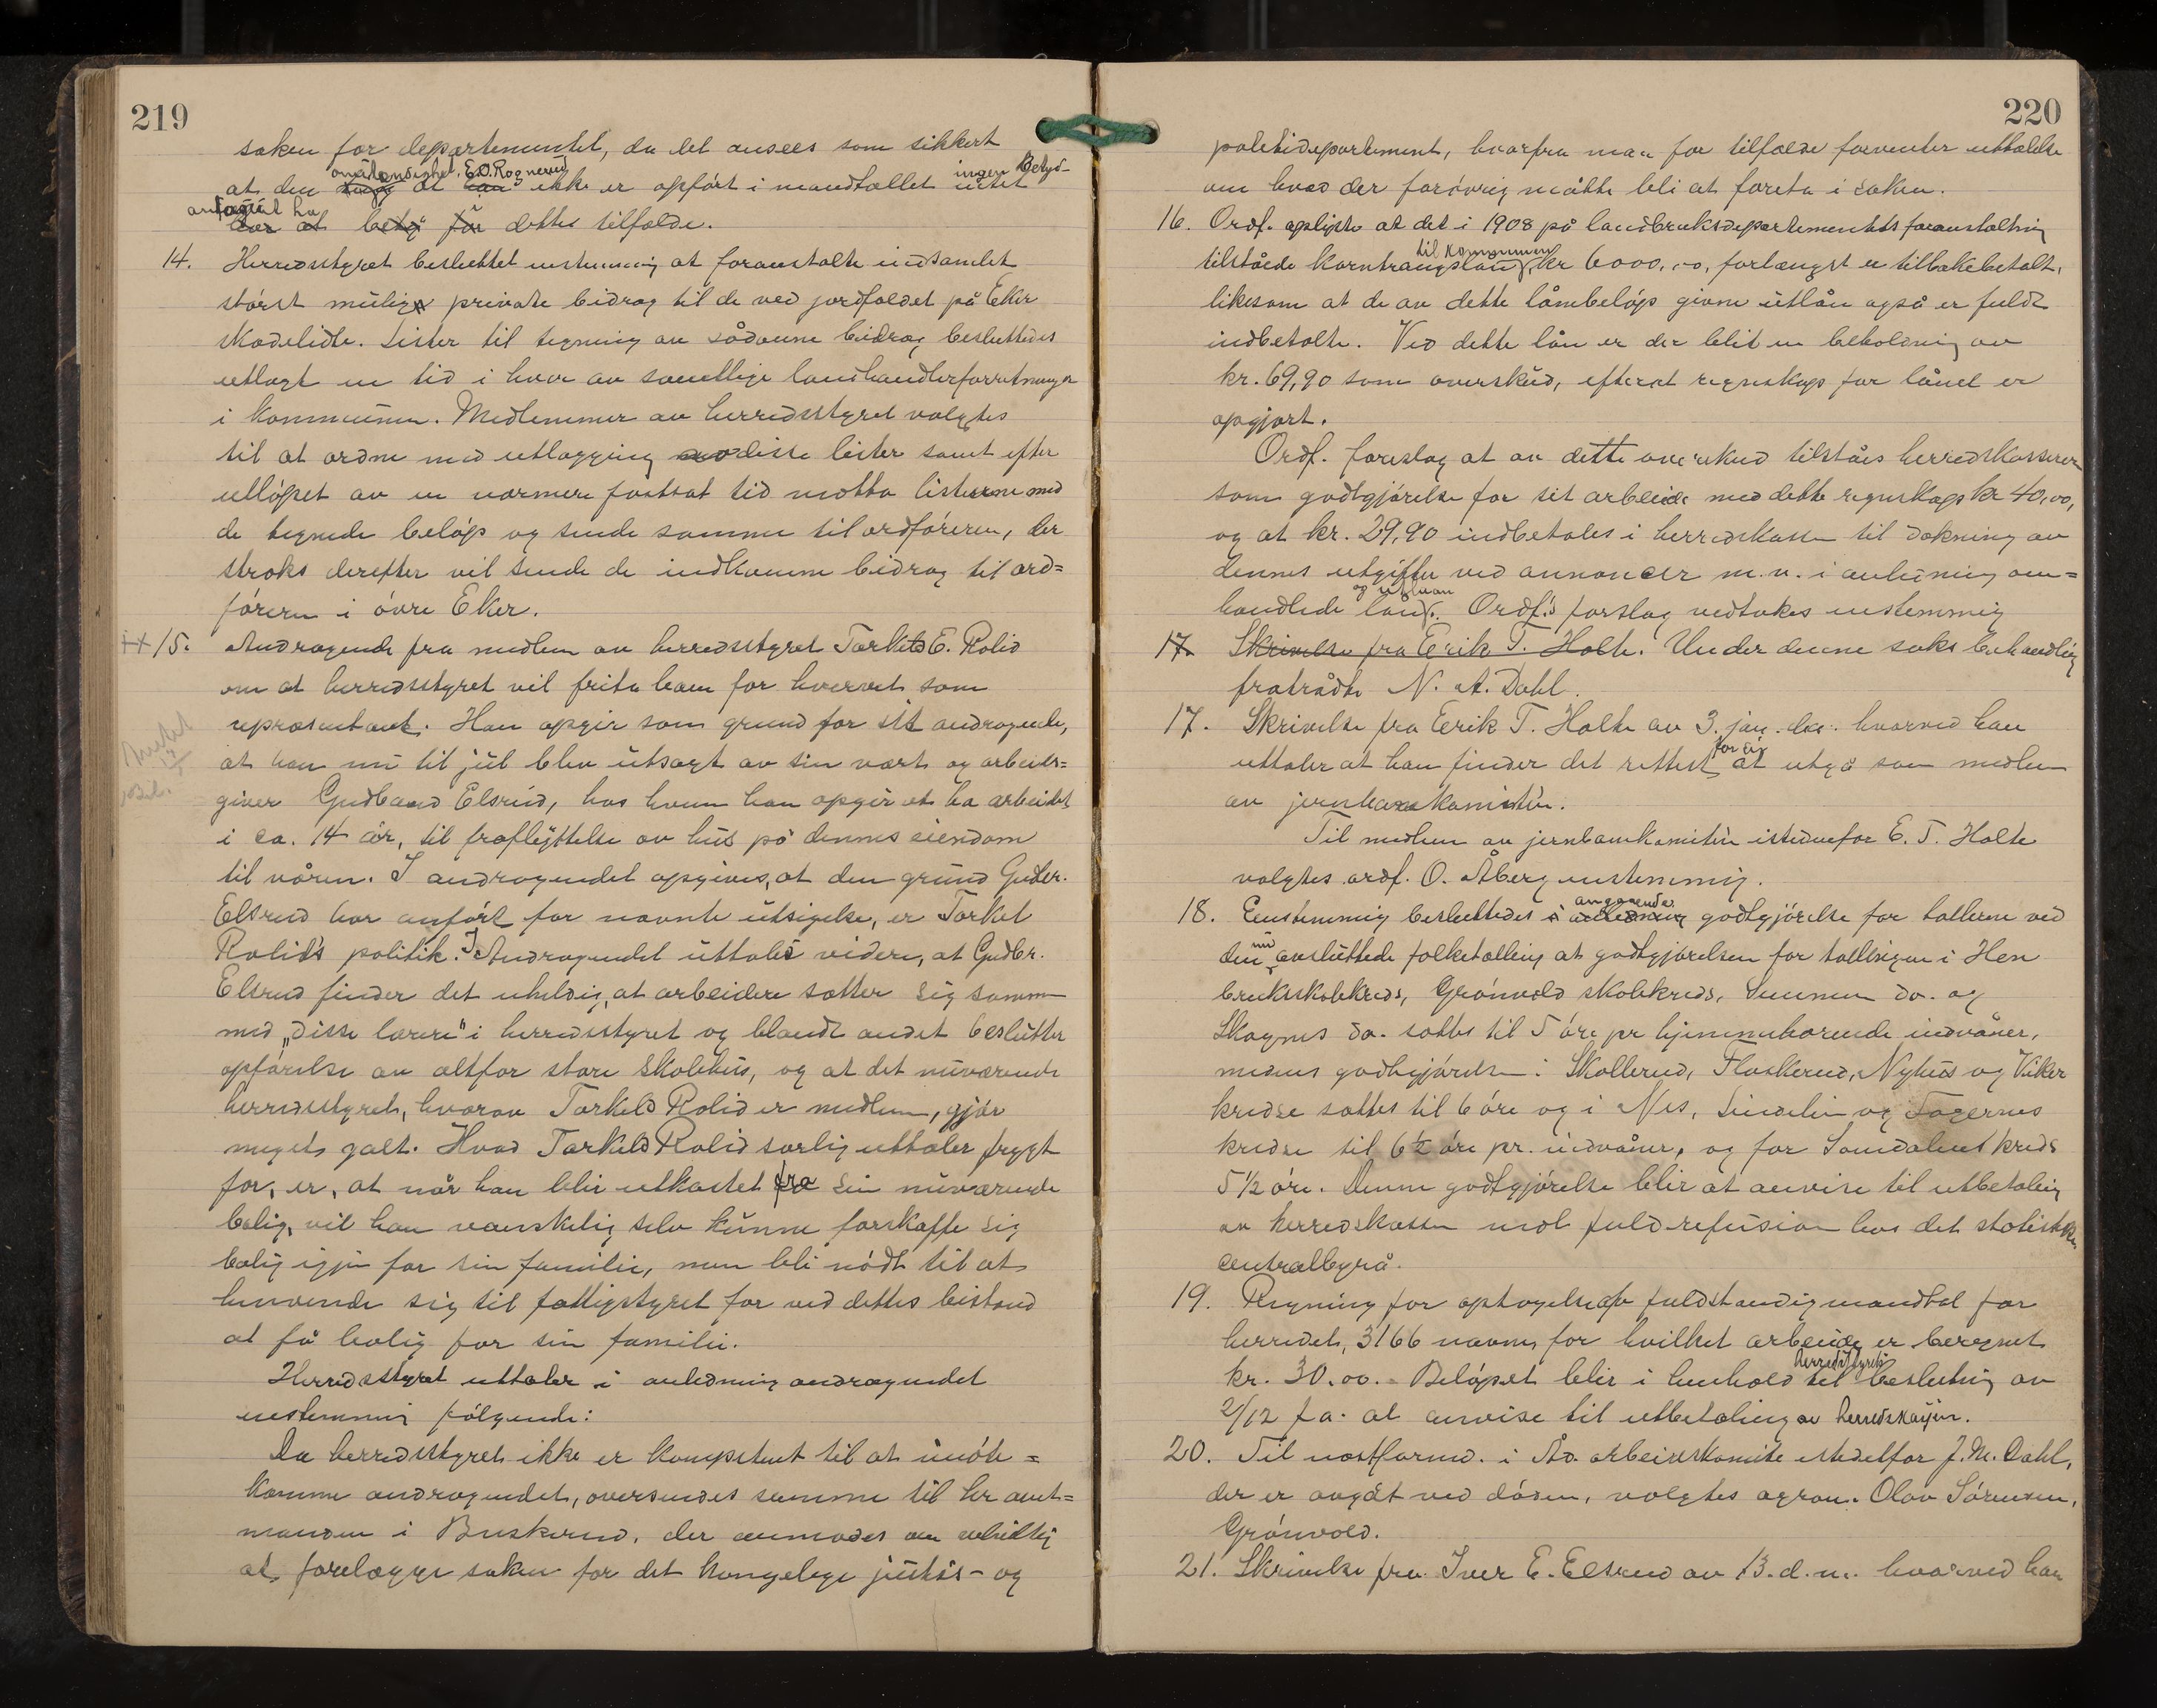 219
saken for departementet, da det ansees som sikkert
omstændighet, E.O. Rognerud ingen Betyd-
at den at han ikke er opført i mandtallet intet
antagelig ha
har at bety for dette tilfælde.
14. Herredsstyret besluttet enstemmig at foranstalte indsamlet
størst mulig private bidrag til de ved jordfaldet på Eker
skadelidte. Lister til tegning av sådanne bidrag besluttedes
utlagt en tid i hver av samtlige landhandlerforretninger
i kommunen. Medlemmer av herredsstyret valgtes
til at ordne med utlægging disse lister samt efter
utløpet av en nærmere fastsat tid motta listerne med
de tegnede beløp og sende samme til ordføreren, der
straks derefter vil sende de indkomne bidrag til ord=
føreren i øvre Eker.
15. Andragende fra medlem av herredsstyret Torkild E. Rolid
om at herredsstyret vil frita ham for hvervet som
repræsentant. Han opgir som grund for sit andragende,
at han nu til jul blev utsagt av sin vært og arbeids=
giver Gudbrand Elsrud, hos hvem han opgir at ha arbeidet
i ca. 14 år, til fraflyttelse av hus på dennes eiendom
til våren. I andragendet opgives, at den grund Gudbr.
Elsrud har anført for nævnte utsigelse, er Torkel
Rolid's politik. I Andragendet uttales videre, at Gudbr.
Elsrud finder det uheldig, at arbeidere sætter sig sammen
med „disse lærere" i herredsstyret og blandt andet beslutter
opførelse av altfor store skolehus, og at det nuværende
herredsstyret, hvorav Torkild Rolid er medlem, gjør
meget galt. Hvad Torkild Rolid særlig uttaler frygt
for, er, at når han blir utkastet fra sin nuværende
bolig, vil han vanskelig selv kunne forskaffe sig
bolig igjen for sin familie, men bli nødt til at
henvende sig til fattigstyret for ved dettes bistand
at få bolig for sin familie.
Herredsstyret uttaler i anledning andragendet
enstemmig følgende:
Da herredsstyret ikke er kompetent til at imøte=
komme andragendet, oversendes samme til hr amt=
manden i Buskerud, der anmodes om velvillig
at forelægge saken for det kongelige justis- og
220
politidepartement, hvorfra man for tilfælde forventer uttalelse
om hvad der forøvrig måtte bli at foreta i saken.
16. Ordf. oplyste at det i 1908 på landbruksdepartementets foranstaltning
til kommunen
tilståede korntrangslån kr 6000,00, forlængst er tilbakebetalt,
likesom at de av dette lånebeløp givne utlån også er fuldt
indbetalte. Ved dette lån er der blit en beholdning av
kr. 69,90 som overskud, efterat regnskap for lånet er
opgjort.
Ordf. foreslog at av dette overskud tilståes herredskassereren
som godtgjørelse for sit arbeide med dette regnskap kr 40,00,
og at kr. 29,90 indbetales i herredskassen til dækning av
dennes utgifter ved annoncer m.v. i anledning om=
og utlaan
handlede lån. Ordf.s forslag vedtokes enstemmig
17. Skrivelse fra Erik T. Holte. Under denne saks behandling
fratrådte N. A. Dahl.
17. Skrivelse fra Erik T. Holte av 3. jan. d.å. hvorved han
for sig
uttaler at han finder det rettest at utgå som medlem
av jernbanekomitéen.
Til medlem av jernbanekomitéen istedenfor E. T. Holte
valgtes ordf. O. Åberg enstemmig.
angaaende
18. Enstemmig besluttedes i anledning godtgjørelse for tællerne ved
nu
den avsluttede folketælling at godtgjørelsen for tællingen i Hen
brukskolekreds, Grønvold skolekreds, Semmen do. og
Skagnes do. sættes til 5 øre pr hjemmehørende indvåner,
medens godtgjørelsen i Skollerud, Flaskerud, Nyhus og Viker
kredse sættes til 6 øre og i Nes, Lindelien og Fagernes
kredse til 6½ øre pr. indvåner, og for Somdalens kreds
5 1/2 øre. Denne godtgjørelse blir at anvise til utbetaling
av herredskassen mot fuld refusion hos det statistiske
centralbyrå.
19. Regning for optagelse av fuldstændig mandtal for
herredet, 3166 navne, for hvilket arbeide er beregnet
herredsstyrets
kr. 30.00. Beløpet blir i henhold til beslutning av
2/12 f.a. at anvise til utbetaling av herredskassen.
20. Til næstformd. i Åd. arbeidskomite istedetfor J. M. Dahl,
der er avgåt ved døden, valgtes agron. Olav Sørensen,
Grønvold.
21. Skrivelse fra Iver E. Elsrud av 13. d.m. hvorved han